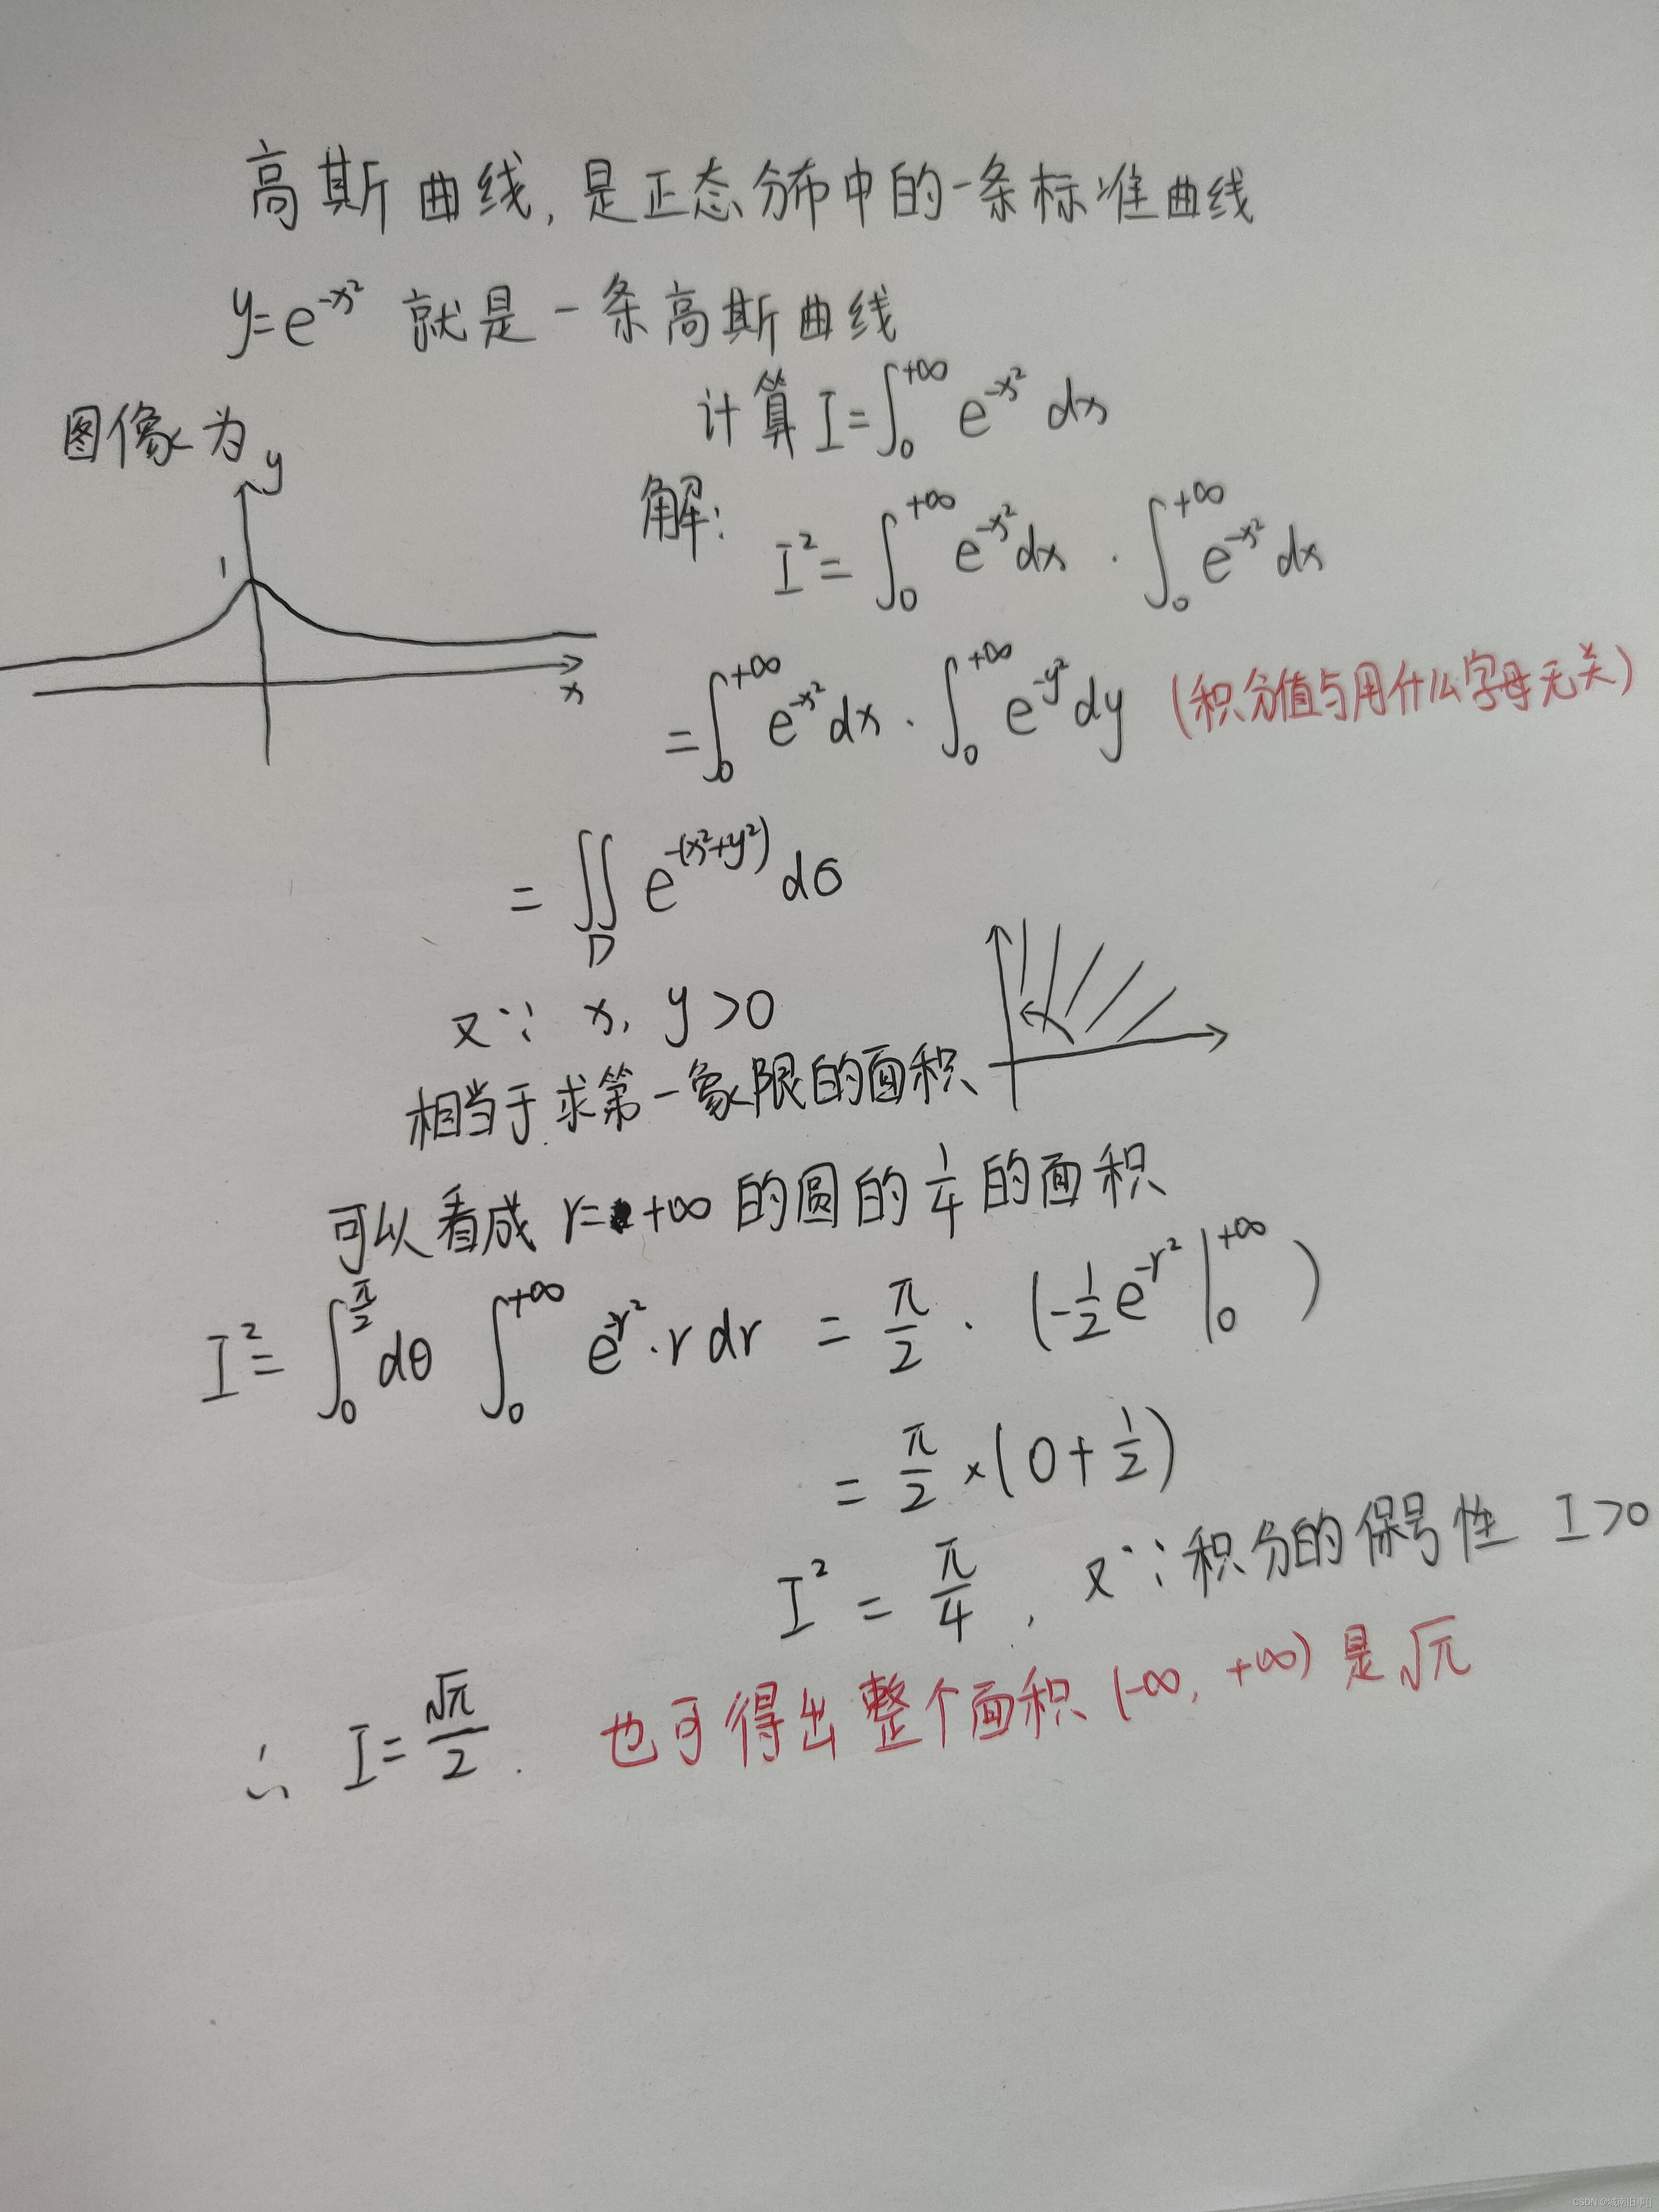 高斯曲线,是正态分布中的一条标准曲线
y=e^{-x²} 就是一条高斯曲线
图像为
y
1
x
计算 I=∫₀^{+∞} e^{-x²} dx
解:
I²=∫₀^{+∞} e^{-x²}dx · ∫₀^{+∞} e^{-x²}dx
=∫₀^{+∞} e^{-x²}dx · ∫₀^{+∞} e^{-y²}dy (积分值与用什么字母无关)
= ∬_D e^{-(x²+y²)} dσ
又∵ x, y>0
相当于求第一象限的面积
可以看成 r=+∞ 的圆的 1/4 的面积
I²=∫₀^{π/2} dθ ∫₀^{+∞} e^{-r²}·r dr = π/2 · (-1/2 e^{-r²}|₀^{+∞})
= π/2 × (0+1/2)
I² = π/4, 又∵积分的保号性 I>0
∴ I=√π/2. 也可得出整个面积 (-∞, +∞) 是√π